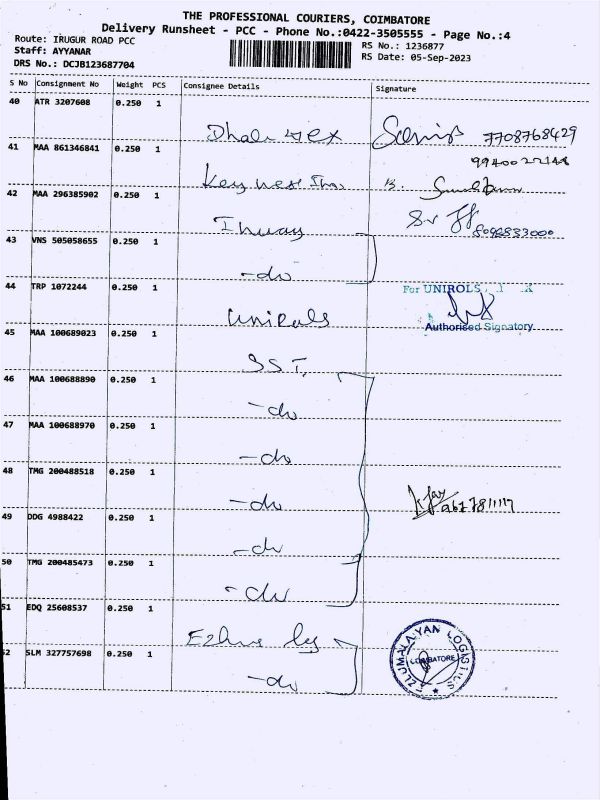 THE PROFESSIONAL COURIERS, COIMBATORE
Delivery Runsheet - PCC - Phone No.:0422-3505555 - Page No.:4
Route: IRUGUR ROAD PCC
Staff: AYYANAR
DRS No.: DCJB123687704
RS No.: 1236877
RS Date: 05-Sep-2023
S No Consignment No Weight PCS Consignee Details Signature
40 ATR 3207608 0.250 1
7708768429
41 MAA 861346841 0.250 1
42 MAA 296385902 0.250 1
8098833000
43 VNS 505058655 0.250 1
-do
44 TRP 1072244 0.250 1
For UNIROLS
Unirols
Authorised Signatory
45 MAA 100689023 0.250 1
SST,
46 MAA 100688890 0.250 1
-do
47 MAA 100688970 0.250 1
-do
48 TMG 200488518 0.250 1
-do
49 DDG 4988422 0.250 1
-do
50 TMG 200485473 0.250 1
-do
51 EDQ 25608537 0.250 1
52 SLM 327757698 0.250 1
-do
EZLUMALAIYAN LOGISTICS
COIMBATORE